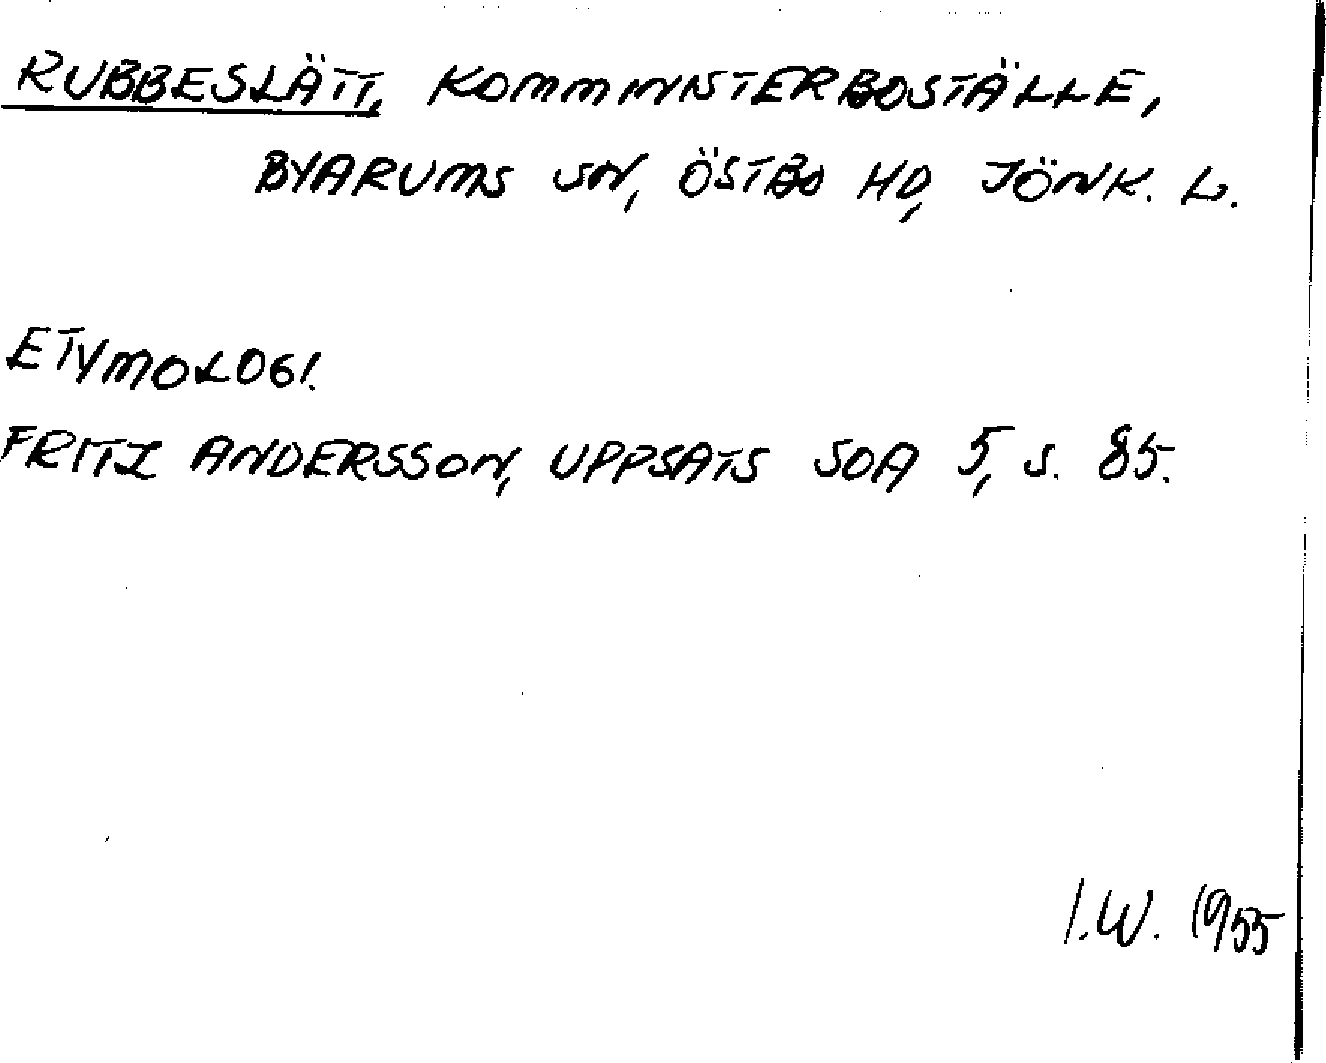 RUBBESLÄTT, KOMMINISTERBOSTÄLLE,
BYARUMS SN, ÖSTBO HD, JÖNK. L.
ETYMOLOGI.
FRITZ ANDERSSON, UPPSATS SOA 5, S. 85.
I.W. 1955